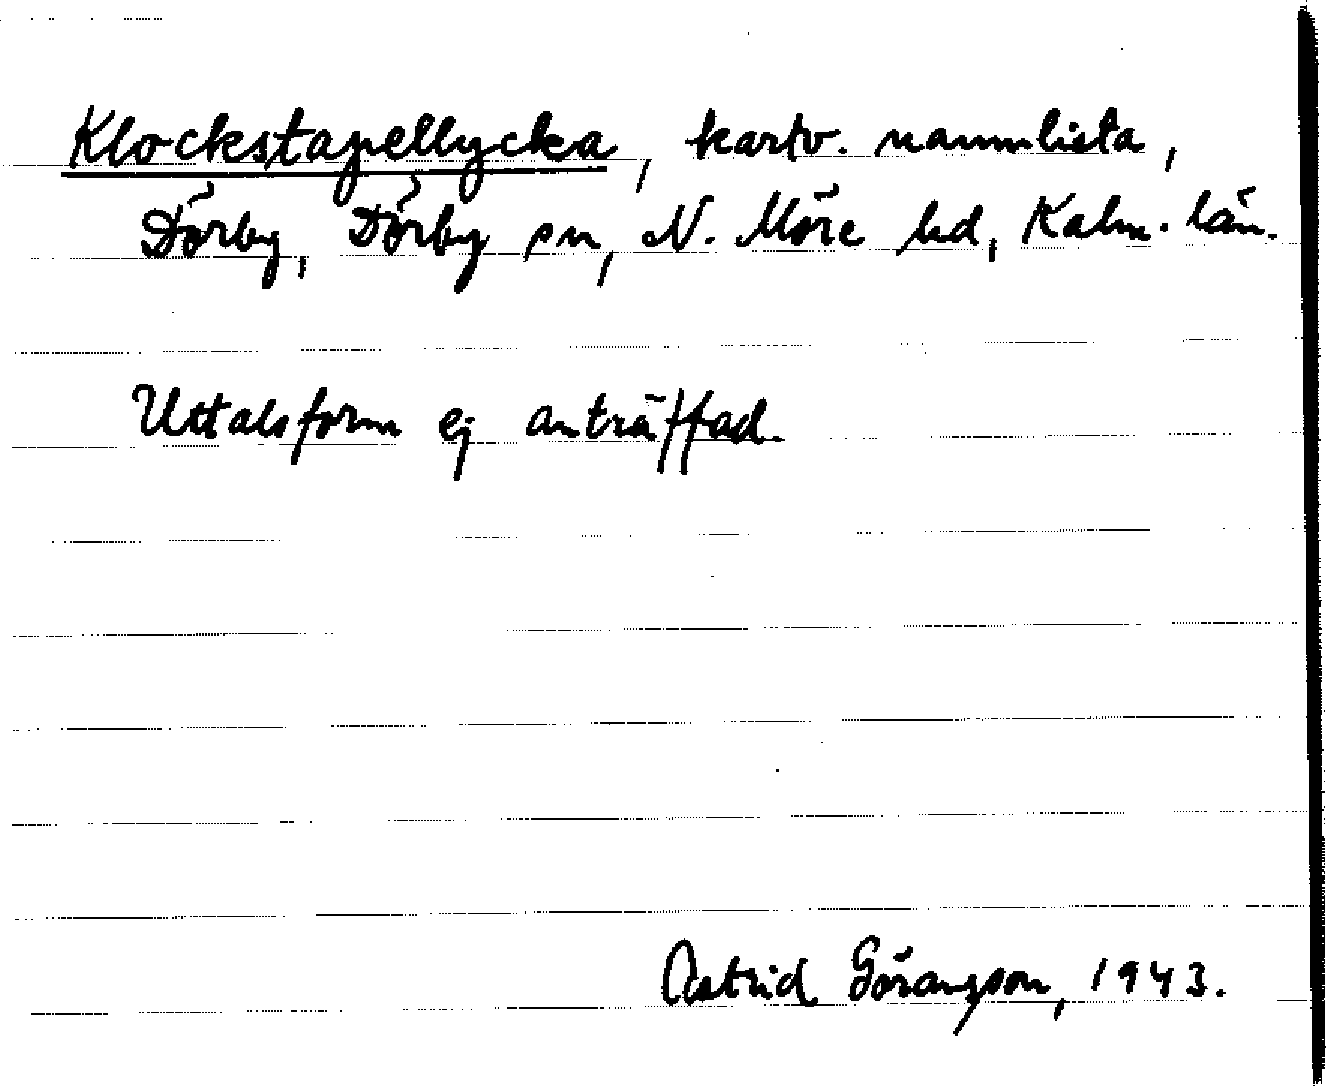 Klockstapellycka, kartv. namnlista,
Dörby, Dörby sn, N. Möre hd, Kalm. län.
Uttalsform ej anträffad.
Astrid Göransson, 1943.